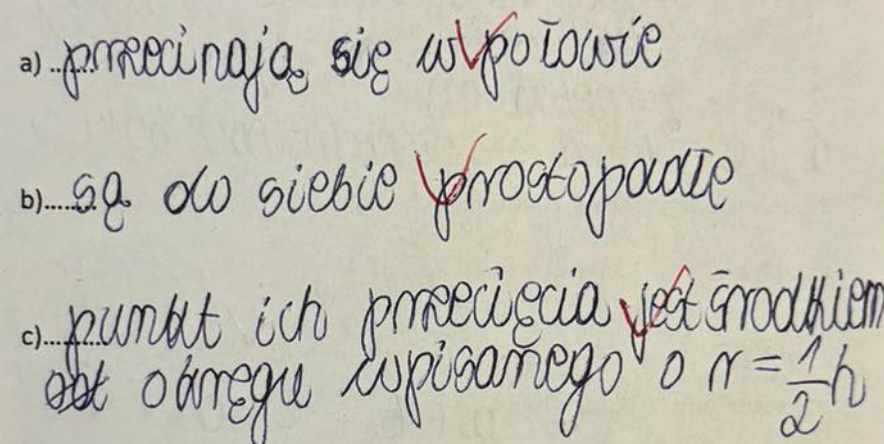 a) przecinają się w połowie
b) są do siebie prostopadłe
c) punkt ich przecięcia jest środkiem
okręgu wpisanego o r = 1/2 h